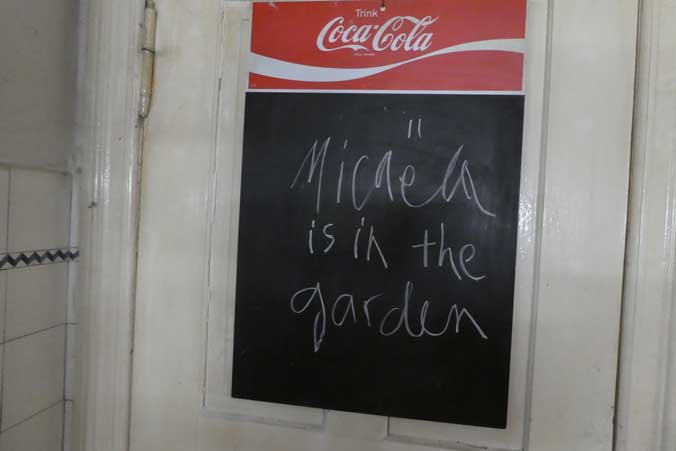 Trink
Coca-Cola
Micaëla
is in the
garden